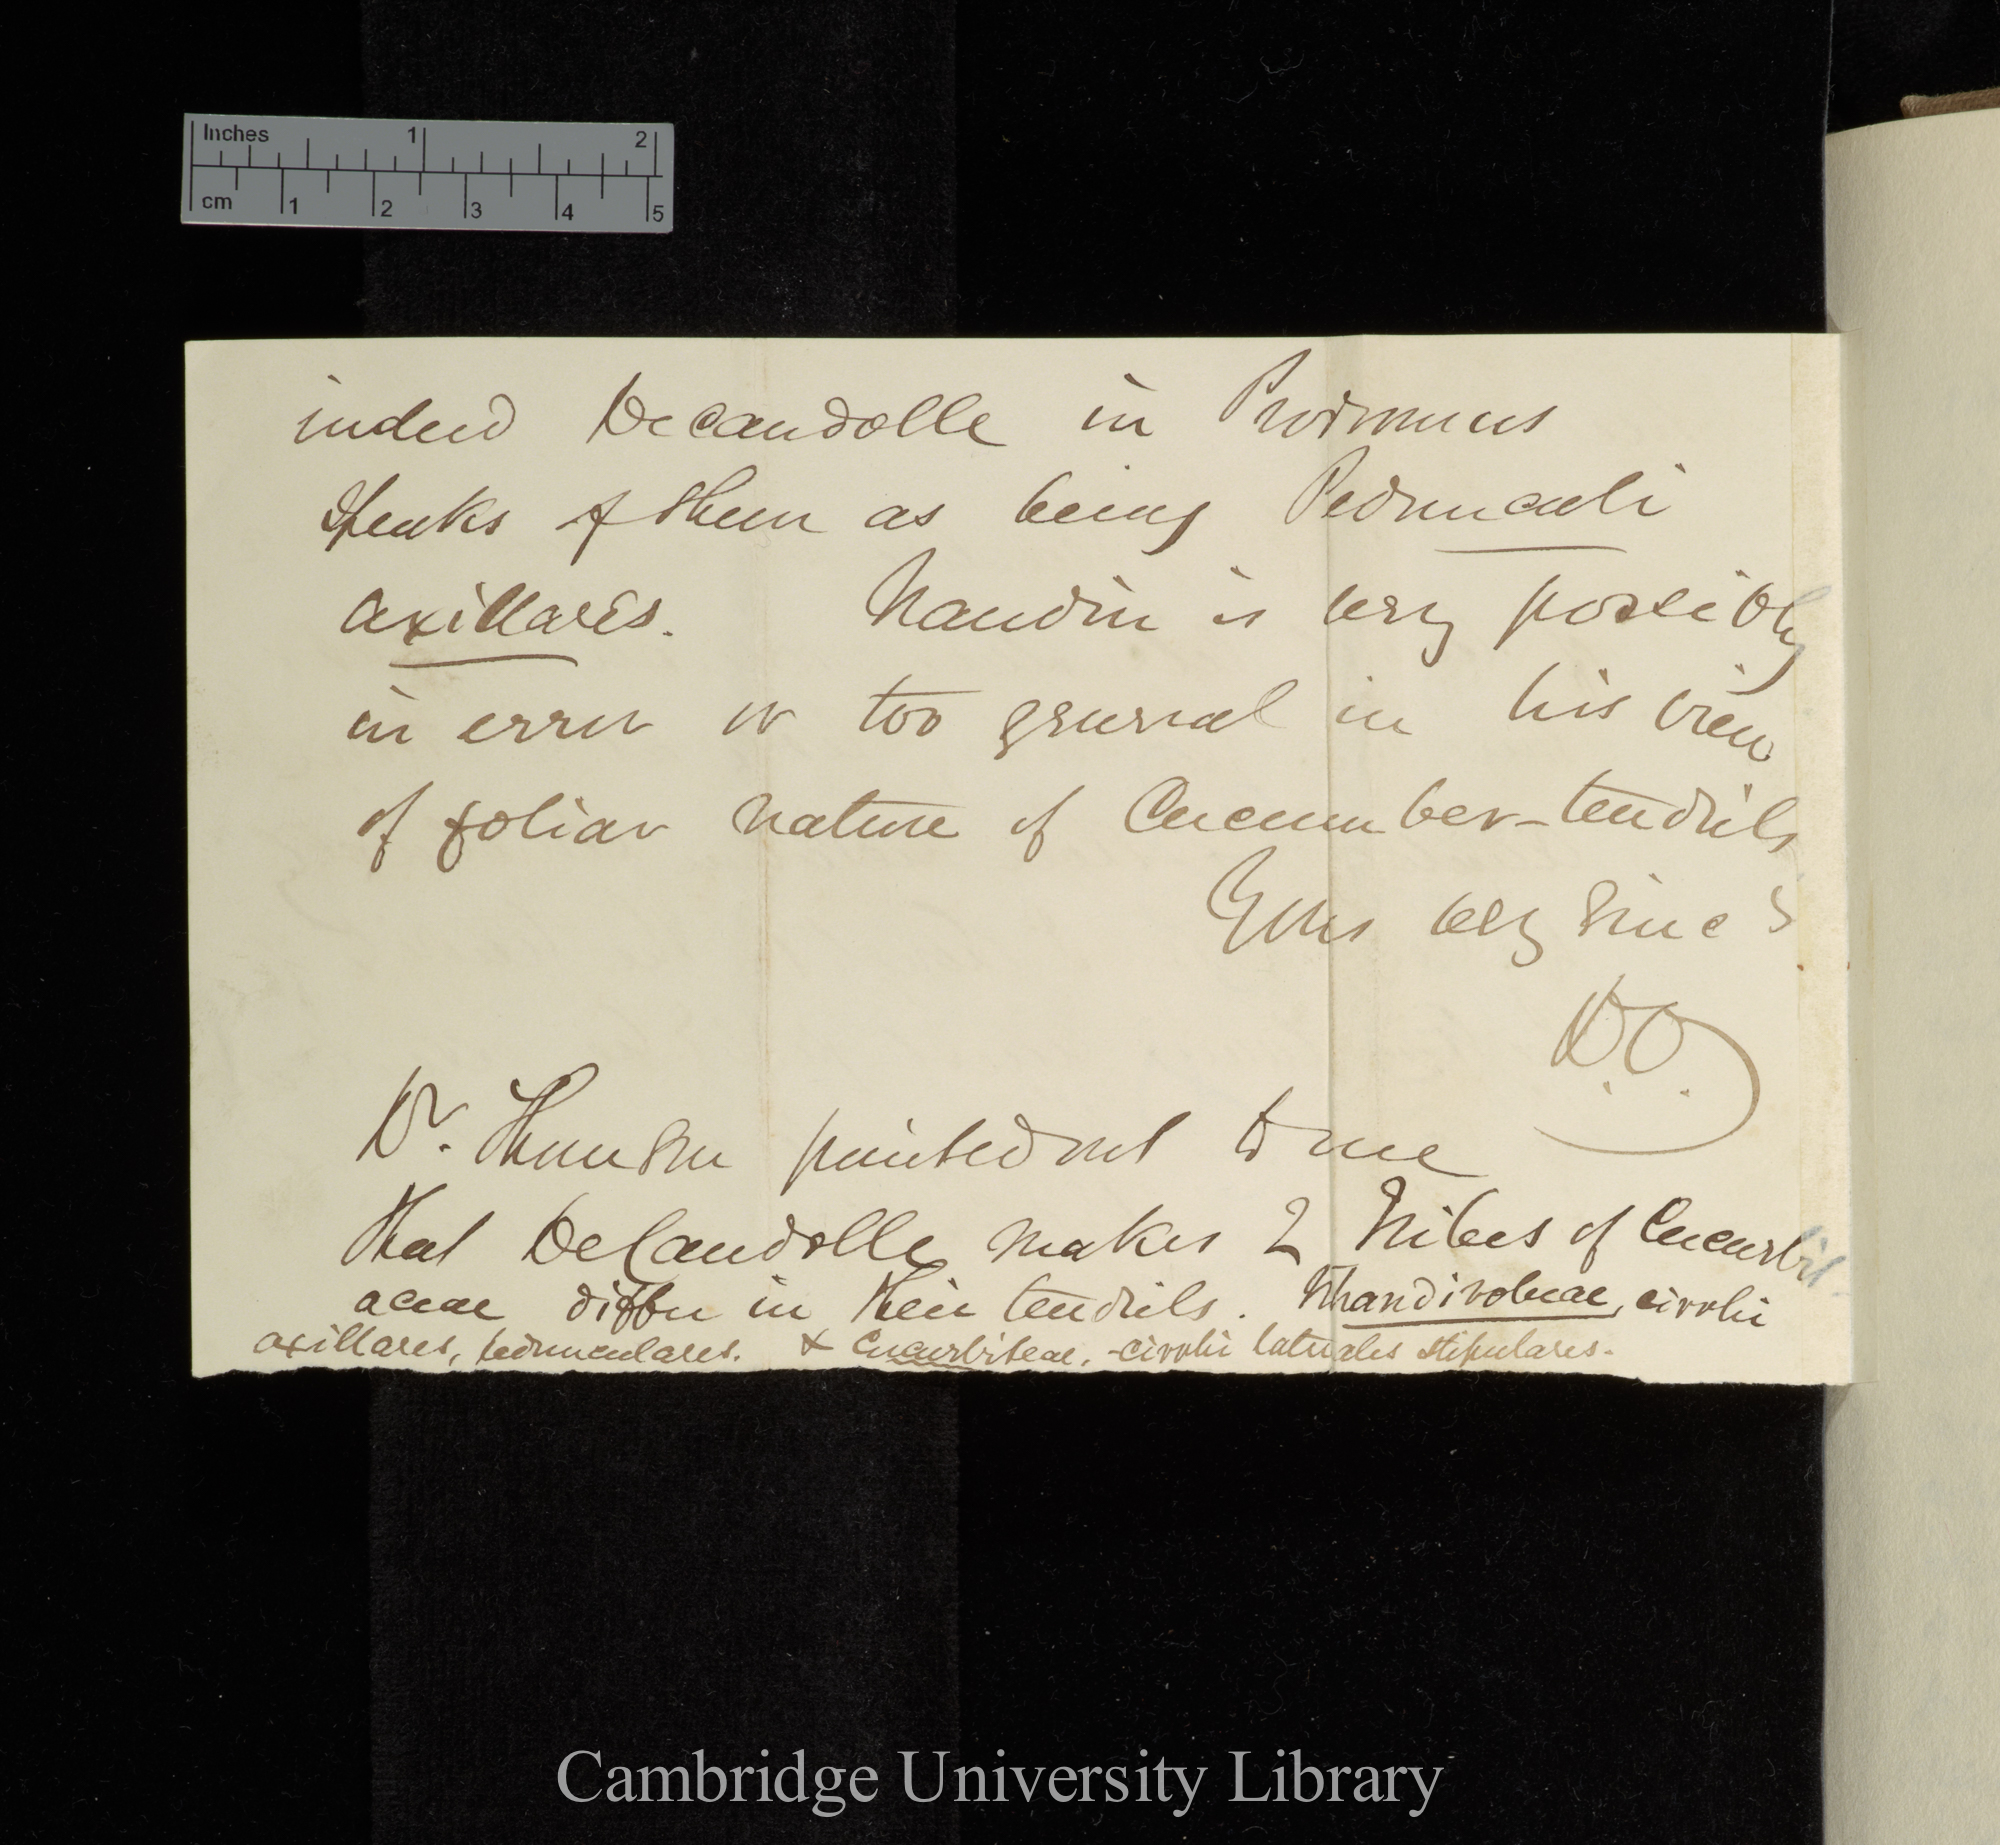 Inches 1 2
cm 1 2 3 4 5
indeed Decandolle in Prodromus
speaks of them as being Pedunculi
axillares. Naudin is very possibly
in error or too general in his view
of foliar nature of Cucumber-tendrils
Yours very since
D.O.
Dr. Thomson pointed out to me
that DeCandolle makes 2 Tribes of Cucurbit
aceae differ in their tendrils. Nhandirobeae, cirrhi
axillares, pedunculares. & Cucurbiteae, -cirrhi laterales stipulares.
Cambridge University Library